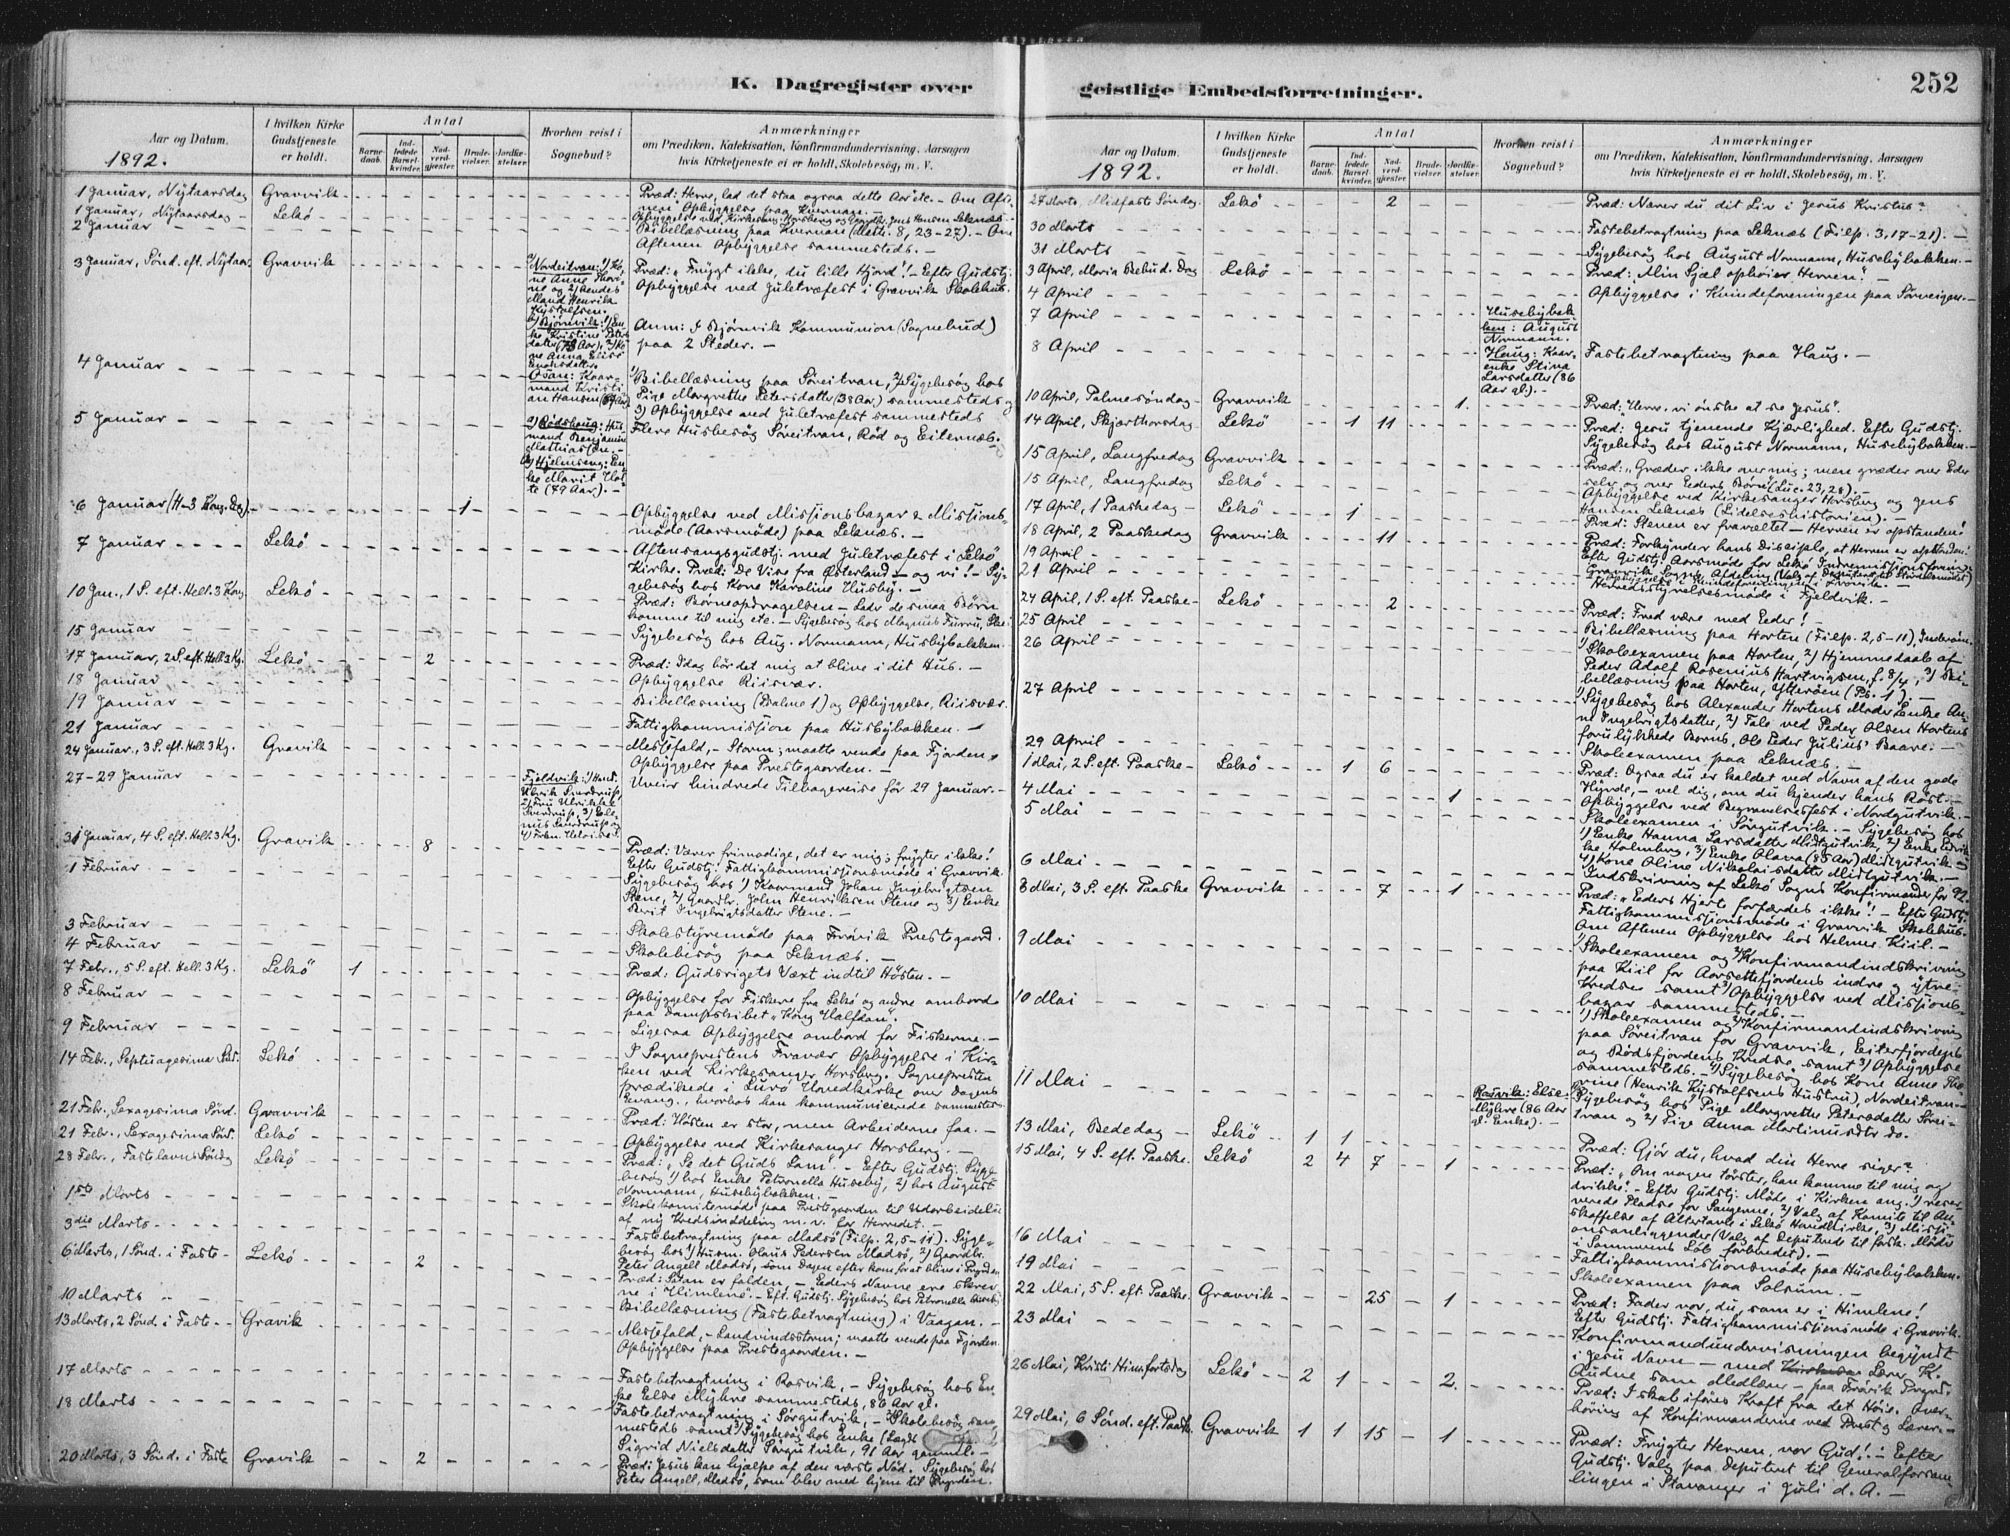 K. Dagregister over
geistlige Embedsforretninger.
252
Aar og Datum.
1892.
I hvilken Kirke
Gudstjeneste
er holdt.
Antal
Barne-
daab.
Ind-
ledede
Barsel-
kvinder.
Nad-
verd-
gjester.
Brude-
vielser.
Jordfæ-
stelser.
Hvorhen reist i
Sognebud?
Anmærkninger
om Prædiken, Katekisation, Konfirmandundervisning, Aarsagen
hvis Kirketjeneste ei er holdt, Skolebesøg, m. V.
1 Januar, Nytaarsdag Gravvik
Præd: Herre, lad det staa ogsaa dette Aar etc. – Om Afte-
nen Opbyggelse paa Kvernan. –
1 Januar, Nytaarsdag Lekö
Opbyggelse ved Kirkesang. Horsberg og Gaardbr. Jens Hansen Leknæs.
2 Januar
Bibellæsning paa Kvernan (Matth. 8, 23-27). – Om
Aftenen Opbyggelse sammesteds. –
3 Januar, Sönd. eft. Nytaar. Gravvik
Præd: "Frygt ikke, du lille Hjord"! – Efter Gudstj.
Opbyggelse ved Juletræfest i Gravvik Skolehus.
Anm: I Bjørnvik Kommunion (Sognebud)
paa 2 Steder. –
4 Januar
1) Bibellæsning paa Søreitran, 2) Sygebesøg hos
Pige Margrethe Petersdatter (38 Aar) sammesteds og
3) Opbyggelse ved Juletræfest sammesteds
5 Januar
Flere Husbesøg Søreitran, Rød og Eiternæs.
6 Januar (H-3 Kong. Dag) 1
Opbyggelse ved Missionsbazar & Missions-
møde (Aarsmøde) paa Leknæs. –
7 Januar Lekö
Aftensangsgudstj. med Juletræfest i Lekö
Kirke. Præd: De Vise fra Østerland – og vi! – Sy-
gebesøg hos Kone Karoline Husby. –
10 Jan., 1 S. eft. Hell. 3 Kong. Lekö
Præd: Børneopdragelsen – Lader de smaa Børn
komme til mig etc. – Sygebesøg hos Magnus Furru, Skei
15 Januar
Sygebesøg hos Aug. Normann, Husbybakken.
17 Januar, 2 S. eft. Hell. 3 Kg. Lekö 2
Præd: Idag bør det mig at blive i dit Hus. –
18 Januar
Opbyggelse Riisvær.
19 Januar
Bibellæsning (Psalme 1) og Opbyggelse, Riisvær.
21 Januar
Fattigkommission paa Husbybakken. –
24 Januar, 3 S. eft. Hell. 3 Kg. Gravvik
Messefald, – Storm; maatte vende paa Fjorden.
Opbyggelse paa Prestegaarden. –
27-29 Januar
Uveir hindrede Tilbagereise før 29 Januar. –
31 Januar, 4 S. eft. Hell. 3 Kg. Gravvik 8
Præd: Værer frimodige, det er mig; frygter ikke!
Efter Gudstj. Fattigkommissionsmøde i Gravvik.
1 Februar
Sygebesøg hos 1) Kaarmand Johan Ingebrigtsen
Stene, 2) Gaardbr. John Henriksen Stene og 3) Enke
Berit Ingebrigtsdatter Stene. –
3 Februar
Skolestyremøde paa Frørvik Prestegaard.
4 Februar
Skolebesøg paa Leknæs. –
7 Febr., 5 S. eft. Hell. 3 Kg. Lekö 1
Præd: Gudsrigets Væxt indtil Høsten. –
8 Februar
Opbyggelse for Fiskerne fra Lekö og andre ombord
paa Dampskibet "Kong Halfdan".
9 Februar
Ligesaa Opbyggelse ombord for Fiskerne. –
14 Febr., Septuagesima Lekö
I Sogneprestens Fravær Opbyggelse i Kir-
ken ved Kirkesanger Horsberg. Sognepresten
prædikede i Lurø Hovedkirke over Dagens
Evang., hvorhos han kommunicerede sammesteds
21 Febr., Sexagesima Sönd. Gravvik
Præd: Høsten er stor, men Arbeiderne faa. –
21 Febr., Sexagesima Lekö
Opbyggelse ved Kirkesanger Horsberg. –
28 Febr., Fastelavns Søndag Lekö
Præd: "Se det Guds Lam". – Efter Gudstj. Syge-
besøg 1) hos Enke Petronella Huseby, 2) hos August
Normann, Husebybakken. –
1ste Marts
Skolekomitemøde paa Prestegaarden til Udarbeidelse
af ny Kredsinddeling m. v. for Herredet. –
3die Marts
Fastebetragtning paa Madsö (Filip. 2, 5-11). Syge-
besøg hos 1) Husm. Olaus Pedersen Madsö, 2) Gaardbr.
Peter Angell Madsö, som Dagen efter kom for at blive i Pryden
6 Marts, 1 Sönd. i Faste Lekö 2
Præd: Satan er falden, – Eders Navne ere skrev-
ne i Himlene". – Eft. Gudstj. Sygebesøg hos Petronella Huseby
10 Marts
Bibellæsning (Fastebetragtning) i Vaagan. –
13 Marts, 2 Sönd. i Faste Gravik
Messefald, – Landvindsstorm; maatte vende paa Fjorden.
Opbyggelse paa Prestegaarden. –
17 Marts
Fastebetragtning i Rosvik, – Sygebesøg hos En-
ke Else Myhre sammesteds, 86 Aar gl.
18 Marts
Fastebetragtning i Sørgutvik, – Skolebesøg sam-
mesteds samt Sygebesøg hos Enke
Sigrid Nielsdatter Sørgutvik, 91 Aar gammel. –
20 Marts, 3 Sönd. i Faste Gravik 2
Præd: Jesus kan hjælpe af den værste Nød. Sygebesøg hos
Peter Angell, Madsö, som blev med hjem til
a) Nordeitran: 1) Ko-
ne Anne Thori-
ne og 2) hendes
Mand Henrik
Kystolfsen.
b) Bjørnvik: 1) En-
ke Kristine Peters
datter (73 Aar), 2) Ko-
ne Anna Elise
Enoksdatter.
Osan: Kaar-
mand Kristi-
an Hansen
a) Rødshaug: Hus-
mand Benjamin
Mathiassen. –
b) Hjelmseng: En-
ke Marit
(79 Aar). –
Fjeldvik: 1) Hand.
Ulrik Sverdrup,
2) Fru Ulrikke
Sverdrup, 3)
Sverdrup og
4) Frkn.
Aar og Datum
1892.
I hvilken Kirke
Gudstjeneste
er holdt.
Antal
Barne-
daab.
Ind-
ledede
Barsel-
kvinder.
Nad-
verd-
gjester.
Brude-
vielser.
Jordfæ-
stelser.
Hvorhen reist i
Sognebud?
Anmærkninger
om Prædiken, Katekisation, Konfirmandundervisning, Aarsagen
hvis Kirketjeneste ei er holdt, Skolebesøg, m. V.
27 Marts, Midfaste Søndag Lekö 2
Præd: Naver du dit Liv i Jesus Kristus?
30 Marts
Fastebetragtning paa Leknæs (Filip. 3, 17-21). –
31 Marts
Sygebesøg hos August Normann, Husebybakken. –
3 April, Maria Bebud. Dag Lekö
Præd: Min Sjæl ophøier Herren". –
4 April
Opbyggelse i Kvindeforeningen paa Sørveigen. –
7 April
Husebybak-
ken: August
Normann.
8 April
Haug: Kaar-
enke Stina
Larsdatter (86
Aar gl). –
Fastebetragtning paa Haug. –
10 April, Palmesøndag Gravvik 1.
Præd: "Herre, vi ønske at se Jesus".
14 April, Skjærthorsdag Lekö 1 11
Præd: Jesu tjenende Kjærlighed. Efter Gudstj.
Sygebesøg hos August Normann, Husebybakken. –
15 April, Langfredag Gravvik
Præd: "Græder ikke over mig; men græder over Eder
selv og over Eders Børn" (Luc. 23, 28). –
15 April, Langfredag Lekö
Opbyggelse ved Kirkesanger Horsberg og Jens
Hansen Leknæs (Lidelseshistorien). –
17 April, 1 Paaskedag Lekö 1
Præd: Stenen er fravæltet – Herren er opstanden!
18 April, 2 Paaskedag Gravvik 11
Præd: Forkynder hans Disciple, at Herren er opstanden.
Efter Gudstj. Aarsmøde for Lekö Indremissionsforening
19 April
21 April
Herredsstyrelsesmøde i Fjeldvik. –
24 April, 1 S. eft. Paaske Lekö 2
Præd: Fred være med Eder!
25 April
Bibellæsning paa Horten (Filip. 2, 5-11), Inderøen.
26 April
1) Skoleexamen paa Horten, 2) Hjemmedaab af
Peder Adolf Rosenius Hartvigsen, f. 8/4, 3) Bi-
bellæsning paa Horten, Ytterøen (Ps. 1). –
27 April
1) Sygebesøg hos Alexander Hortens Moder Enke An-
ne Ingebrigtsdatter, 2) Tale ved Peder Olsen Hortens
forulykkede Barns, Ole Peder Julius' Baare. –
29 April
Skoleexamen paa Leknæs. –
1 Mai, 2 S. eft. Paaske Lekö 1 6
Præd: Ogsaa du er kaldet ved Navn af den gode
Hyrde, – vel dig, om du kjender hans Røst. –
4 Mai 1
Opbyggelse ved Begravelsesfest i Nordgutvik. –
5 Mai
Skoleexamen i Sørgutvik. – Sygebesøg hos
1) Enke Hanna Larsdatter Midtgutvik, 2) Enke
Holmberg, 3) Enke Olava (85 Aar) Midtgutvik og
4) Kone Oline Nikolaisdatter Midtgutvik. –
6 Mai
Indskrivning af Lekö Sogns Konfirmander for 92.
8 Mai, 3 S. eft. Paaske Gravvik 7 1
Præd: "Eders Hjerte forfærdes ikke"! – Efter Gudstj.
Fattigkommissionsmøde i Gravvik Skolehus.
Om Aftenen Opbyggelse hos Helmer Kiil. –
9 Mai
1) Skoleexamen og 2) Konfirmandindskrivning
paa Kiil for Aarsetfjordens indre og ytre
Kredse samt 3) Opbyggelse ved Missions-
bazar sammesteds. –
10 Mai
1) Skoleexamen og 2) Konfirmandindskrivning
paa Søreitran for Gravvik, Eiterfjordens
og Rødsfjordens Kredse samt 3) Opbyggelse
sammesteds. – 4) Sygebesøg hos Kone Anne Tho-
rine (Henrik Kystolfsens Hustru), Nordeitran. –
11 Mai
Rosvik: Else
Myhre (86 Aar
gl. Enke). –
Sygebesøg hos 1) Pige Margrethe Petersdatter Sørei-
tran og 2) Pige Anna Martinusdtr do.
13 Mai, Bededag Lekö 1 1
Præd: Gjør du, hvad din Herre siger?
15 Mai, 4 S. eft. Paaske Lekö 2 4 7 1
Præd: "Om nogen tørster, han komme til mig og
drikke". – Efter Gudstj. Møde i Kirken ang. 1) reser-
verede Pladse for Sangerne, 2) Valg af Komite til An-
skaffelse af Altertavle i Lekö Hovedkirke, 3) Missi-
onsanliggender (Valg af Deputerede til forsk. Møder
i Sommerens Løb forberedet). –
16 Mai
Fattigkommissionsmøde paa Husebybakken.
19 Mai
Skoleexamen paa Solsum. –
22 Mai, 5 S. eft. Paaske Gravvik 25 1
Præd: Fader vor, du, som er i Himlene!
Efter Gudstj. Fattigkommissionsmøde i Gravvik.
23 Mai
Konfirmandundervisningen begyndt
i Jesu Navn – med Lærer K.
Audne som Medlærer – paa Frørvik Prestg.
26 Mai, Kristi Himmelfartsdag Lekö 2 1 2.
Præd: I skal iføres Kraft fra det Høie. Over-
høring af Konfirmanderne ved Prest og Lærer. –
29 Mai, 6 Sönd. eft. Paaske Gravvik 1 1 15 1
Præd: Frygter Herren, vor Gud! – Efter
Gudstj. Valg paa Deputeret til Generalforsam-
lingen i Stavanger i Juli d. A. –